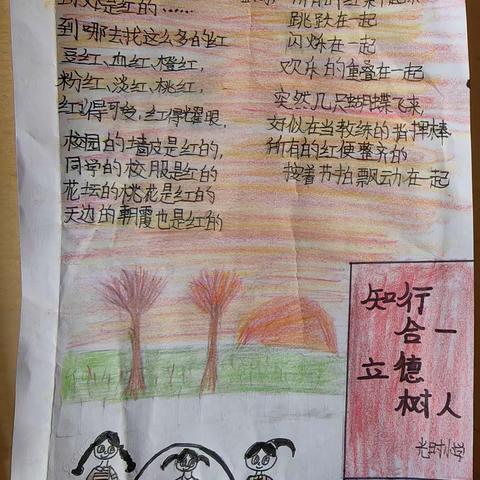 到哪去找这么多的红
豆红、血红、橙红,
粉红、淡红、桃红,
红得可爱,红得耀眼,
校园的墙皮是红的,
同学的校服是红的
花坛的桃花是红的
天边的朝霞也是红的
跳跃在一起
闪烁在一起
欢乐的重叠在一起
突然几只蝴蝶飞来,
好似在当教练的指挥棒
所有的红便整齐的
按着节拍飘动在一起
知行
合一
立德
树人
小学